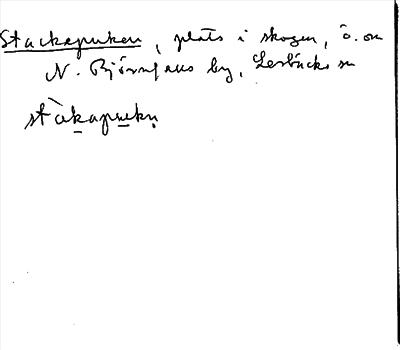 Stackapuken, plats i skogen, ö. om
N. Björnfalls by, Lerbäcks sn
stàkapukn̥